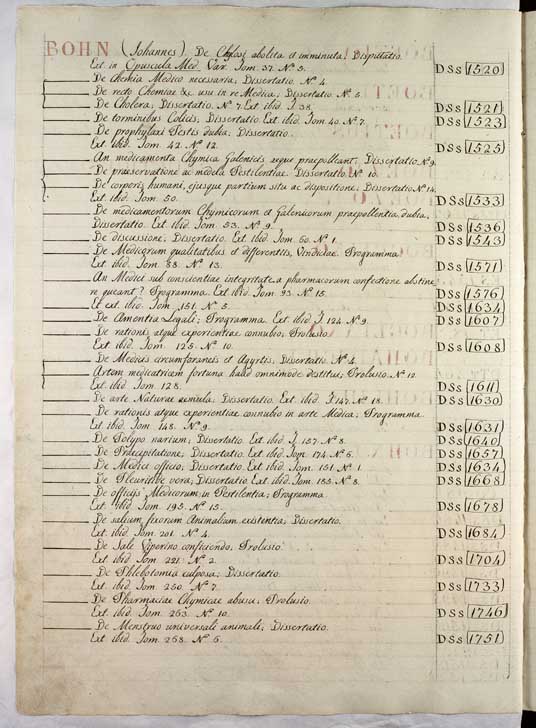 BOHN (Johannes). De Chylosi abolita et imminuta; Disputatio.
Ext. in Opuscula Med. Var. Tom. 37. Nº 5. DSs 1520
De Chemia Medico necessaria; Dissertatio. Nº 4.
De recto Chemiae &c usu in re Medica; Dissertatio. Nº 5.
De Cholera; Dissertatio. Nº 7. Ext. ibid. T 38. DSs 1521
De torminibus Colicis; Dissertatio. Ext. ibid. Tom. 40. Nº 7. DSs 1523
De prophylaxi Pestis dubia; Dissertatio.
Ext. ibid. Tom. 42. Nº 12. DSs 1525
An medicamenta Chymica Galenicis aeque praepolleant. Dissertatio Nº 9.
De praeservatione ac medela Pestilentiae. Dissertatio Nº 10.
De corporis humani, ejusque partium situ ac dispositione; Dissertatio Nº 14.
Ext. ibid. Tom. 50. DSs 1533
De medicamentorum Chymicorum et Galenicorum praepollentia dubia;
Dissertatio. Ext. ibid. Tom. 53. Nº 9. DSs 1536
De discussione; Dissertatio. Ext. ibid. Tom. 60. Nº 1. DSs 1543
De Medicorum qualitatibus et differentiis, Vindiciae. Programma.
Ext. ibid. Tom. 88. Nº 13. DSs 1571
An Medici sub conscientiae integritate a pharmacorum confectione abstine
re queant? Programma. Ext. ibid. Tom. 93. Nº 15. DSs 1576
Et ext. ibid. Tom. 151. Nº 5. DSs 1634
De Amentia Legali; Programma. Ext. ibid. T 124. Nº 9. DSs 1607
De rationis atque experientiae connubio; Prolusio.
Ext. ibid. Tom. 125. Nº 10. DSs 1608
De Medicis circumforaneis et Agyrtis; Dissertatio. Nº 4.
Artem medicatricem fortuna haud omnimode destitui; Prolusio. Nº 12.
Ext. ibid. Tom. 128. DSs 1611
De arte Naturae aemula; Dissertatio. Ext. ibid. T 147. Nº 18. DSs 1630
De rationis atque experientiae connubio in arte Medica; Programma.
Ext. ibid. Tom. 148. Nº 9. DSs 1631
De Polypo narium; Dissertatio. Ext. ibid. T. 157. Nº 8. DSs 1640
De Praecipitatione; Dissertatio. Ext. ibid. Tom. 174. Nº 6. DSs 1657
De Medici officio; Dissertatio. Ext. ibid. Tom. 151. Nº 1. DSs 1634
De Pleuritide vera; Dissertatio. Ext. ibid. Tom. 185. Nº 8. DSs 1668
De officijs Medicorum in Pestilentia; Programma.
Ext. ibid. Tom. 195. Nº 15. DSs 1678
De salium fixorum Animalium existentia; Dissertatio.
Ext. ibid. Tom. 201. Nº 4. DSs 1684
De Sale Viperino conficiendo; Prolusio.
Ext. ibid. Tom. 221. Nº 2. DSs 1704
De Phlebotomia culposa; Dissertatio.
Ext. ibid. Tom. 250. Nº 7. DSs 1733
De Pharmaciae Chymicae abusu; Prolusio.
Ext. ibid. Tom. 263. Nº 10. DSs 1746
De Menstruo universali animali; Dissertatio.
Ext. ibid. Tom. 268. Nº 6. DSs 1751